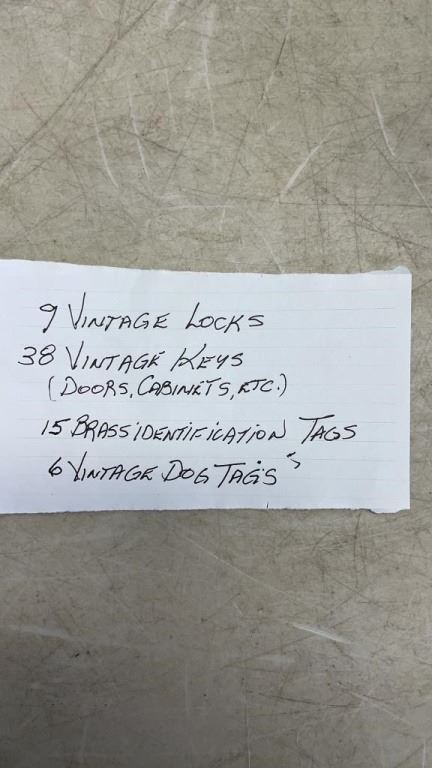 9 VINTAGE LOCKS
38 VINTAGE KEYS
(DOORS, CABINETS, ETC.)
15 BRASS IDENTIFICATION TAGS
6 VINTAGE DOG TAGS